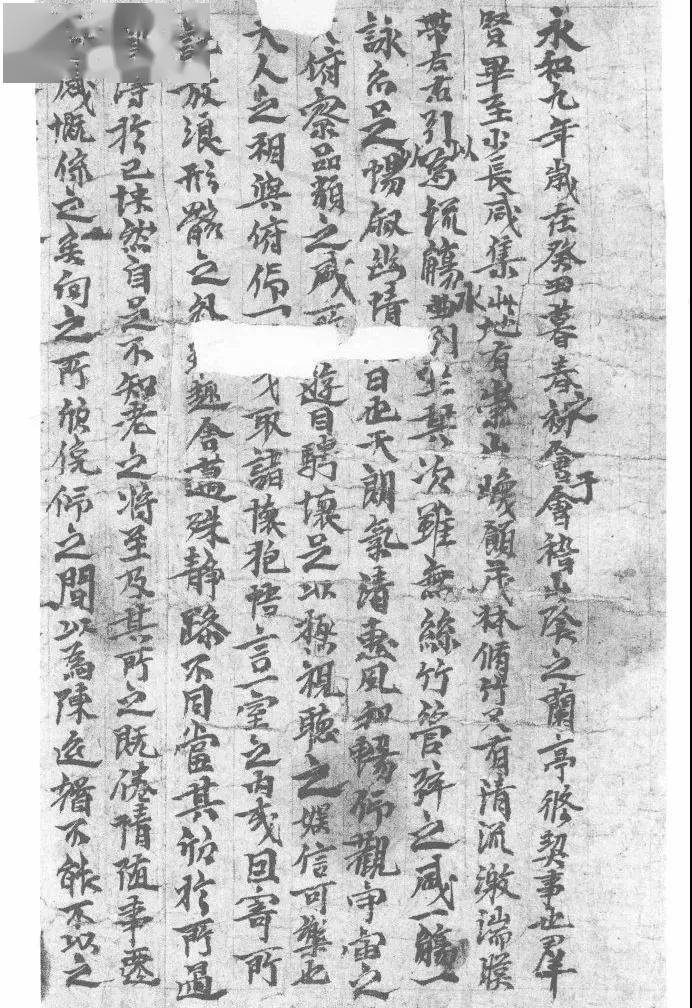 永和九年歲在癸丑暮春之初會于會稽山陰之蘭亭脩稧事也羣
賢畢至少長咸集此地有崇山峻領茂林脩竹又有清流激湍暎
帶左右引以為流觴曲水列坐其次雖無絲竹管弦之盛一觴一
詠亦足以暢敘幽情日也天朗氣清惠風和暢仰觀宇宙之
俯察品類之盛所遊目騁懷足以極視聽之娛信可樂也
夫人之相與俯仰一或取諸懷抱悟言一室之内或因寄所
託放浪形骸之趣舍萬殊靜躁不同當其欣於所遇
得於己快然自足不知老之將至及其所之既倦情随事遷
感慨係之矣向之所欣俛仰之間以為陳迹猶不能不以之